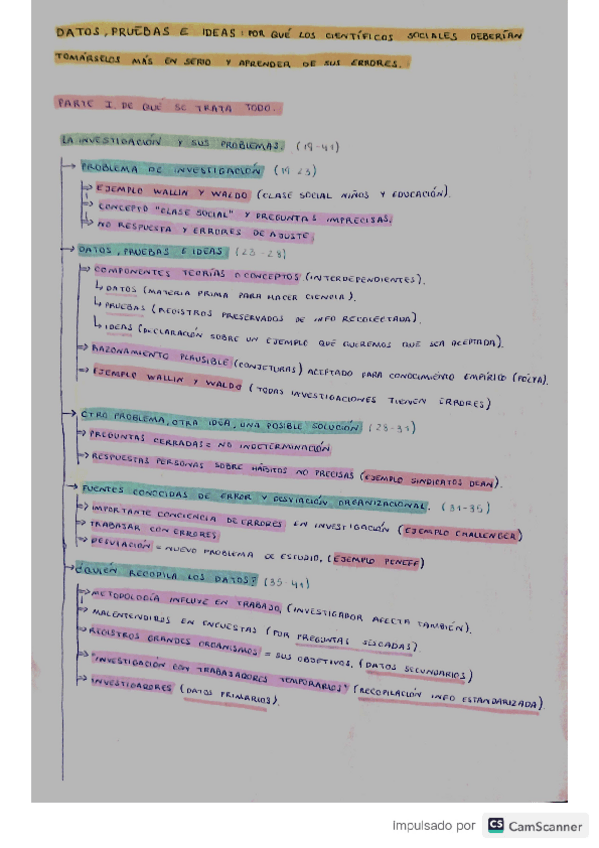 DATOS, PRUEBAS E IDEAS: POR QUÉ LOS CIENTÍFICOS SOCIALES DEBERÍAN
TOMÁRSELOS MÁS EN SERIO Y APRENDER DE SUS ERRORES.
PARTE I. DE QUÉ SE TRATA TODO.
LA INVESTIGACIÓN Y SUS PROBLEMAS. (19-41)
→ PROBLEMA DE INVESTIGACIÓN (19-23)
⇒ EJEMPLO WALLIN Y WALDO (CLASE SOCIAL NIÑOS Y EDUCACIÓN).
⇒ CONCEPTO "CLASE SOCIAL" Y PREGUNTAS IMPRECISAS.
⇒ NO RESPUESTA Y ERRORES DE AJUSTE.
→ DATOS, PRUEBAS E IDEAS (23-28)
⇒ COMPONENTES TEORÍAS O CONCEPTOS (INTERDEPENDIENTES).
↳ DATOS (MATERIA PRIMA PARA HACER CIENCIA).
↳ PRUEBAS (REGISTROS PRESERVADOS DE INFO RECOLECTADA).
↳ IDEAS (DECLARACIÓN SOBRE UN EJEMPLO QUE QUEREMOS QUE SEA ACEPTADA).
⇒ RAZONAMIENTO PLAUSIBLE (CONJETURAS) ACEPTADO PARA CONOCIMIENTO EMPÍRICO (POLYA).
⇒ EJEMPLO WALLIN Y WALDO (TODAS INVESTIGACIONES TIENEN ERRORES)
→ OTRO PROBLEMA, OTRA IDEA, UNA POSIBLE SOLUCIÓN (28-31)
⇒ PREGUNTAS CERRADAS = NO INDETERMINACIÓN
⇒ RESPUESTAS PERSONAS SOBRE HÁBITOS NO PRECISAS (EJEMPLO SINDICATOS DEAN).
→ FUENTES CONOCIDAS DE ERROR Y DESVIACIÓN ORGANIZACIONAL. (31-35)
⇒ IMPORTANTE CONCIENCIA DE ERRORES EN INVESTIGACIÓN (EJEMPLO CHALLENGER)
⇒ TRABAJAR CON ERRORES
⇒ DESVIACIÓN = NUEVO PROBLEMA DE ESTUDIO. (EJEMPLO PENEFF)
→ ¿QUIÉN RECOPILA LOS DATOS? (35-41)
⇒ METODOLOGÍA INFLUYE EN TRABAJO, (INVESTIGADOR AFECTA TAMBIÉN).
⇒ MALENTENDIDOS EN ENCUESTAS (POR PREGUNTAS SESGADAS).
⇒ REGISTROS GRANDES ORGANISMOS = SUS OBJETIVOS. (DATOS SECUNDARIOS)
⇒ "INVESTIGACIÓN CON TRABAJADORES TEMPORARIOS" (RECOPILACIÓN INFO ESTANDARIZADA).
⇒ INVESTIGADORES (DATOS PRIMARIOS).
Impulsado por CS CamScanner